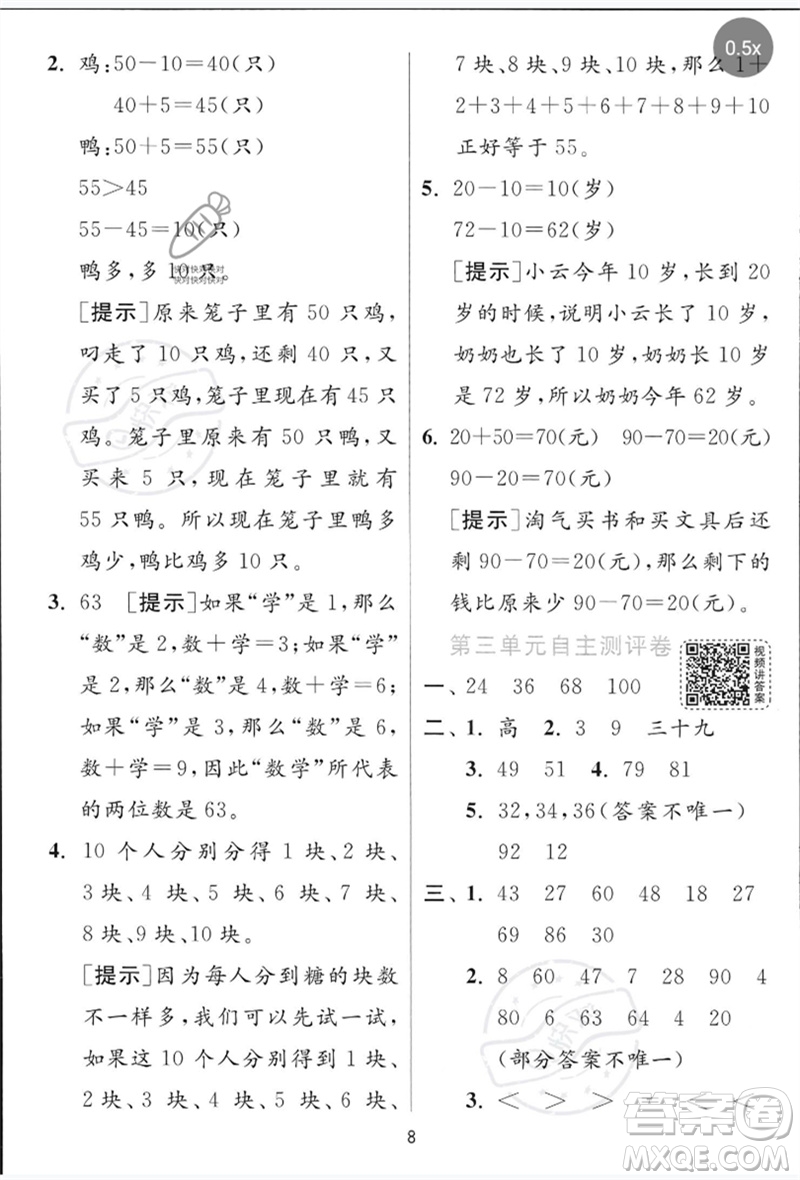 0.5x
2. 鸡:50－10＝40(只)
40＋5＝45(只)
鸭:50＋5＝55(只)
55＞45
55－45＝10(只)
鸭多,多 10 只。
快对快对快对
快对快对快对
[提示]原来笼子里有 50 只鸡,
叼走了 10 只鸡,还剩 40 只,又
买了 5 只鸡,笼子里现在有 45 只
鸡。笼子里原来有 50 只鸭,又
买来 5 只,现在笼子里就有
55 只鸭。所以现在笼子里鸭多
鸡少,鸭比鸡多 10 只。
3. 63 [提示]如果“学”是 1,那么
“数”是 2,数＋学＝3;如果“学”
是 2,那么“数”是 4,数＋学＝6;
如果“学”是 3,那么“数”是 6,
数＋学＝9,因此“数学”所代表
的两位数是 63。
4. 10 个人分别分得 1 块、2 块、
3 块、4 块、5 块、6 块、7 块、
8 块、9 块、10 块。
[提示]因为每人分到糖的块数
不一样多,我们可以先试一试,
如果这 10 个人分别得到 1 块、
2 块、3 块、4 块、5 块、6 块、
7 块、8 块、9 块、10 块,那么 1＋
2＋3＋4＋5＋6＋7＋8＋9＋10
正好等于 55。
5. 20－10＝10(岁)
72－10＝62(岁)
[提示]小云今年 10 岁,长到 20
岁的时候,说明小云长了 10 岁,
奶奶也长了 10 岁,奶奶长 10 岁
是 72 岁,所以奶奶今年 62 岁。
6. 20＋50＝70(元) 90－70＝20(元)
90－20＝70(元)
[提示]淘气买书和买文具后还
剩 90－70＝20(元),那么剩下的
钱比原来少 90－20＝70(元)。
第三单元自主测评卷
视频讲答案
一、24 36 68 100
二、1. 高 2. 3 9 三十九
3. 49 51 4. 79 81
5. 32,34,36(答案不唯一)
92 12
三、1. 43 27 60 48 18 27
69 86 30
2. 8 60 47 7 58 90 4
80 6 63 64 4 20
(部分答案不唯一)
3. ＜ ＞ ＞ ＜ ＜ ＞
8
答案圈
MXQE.COM